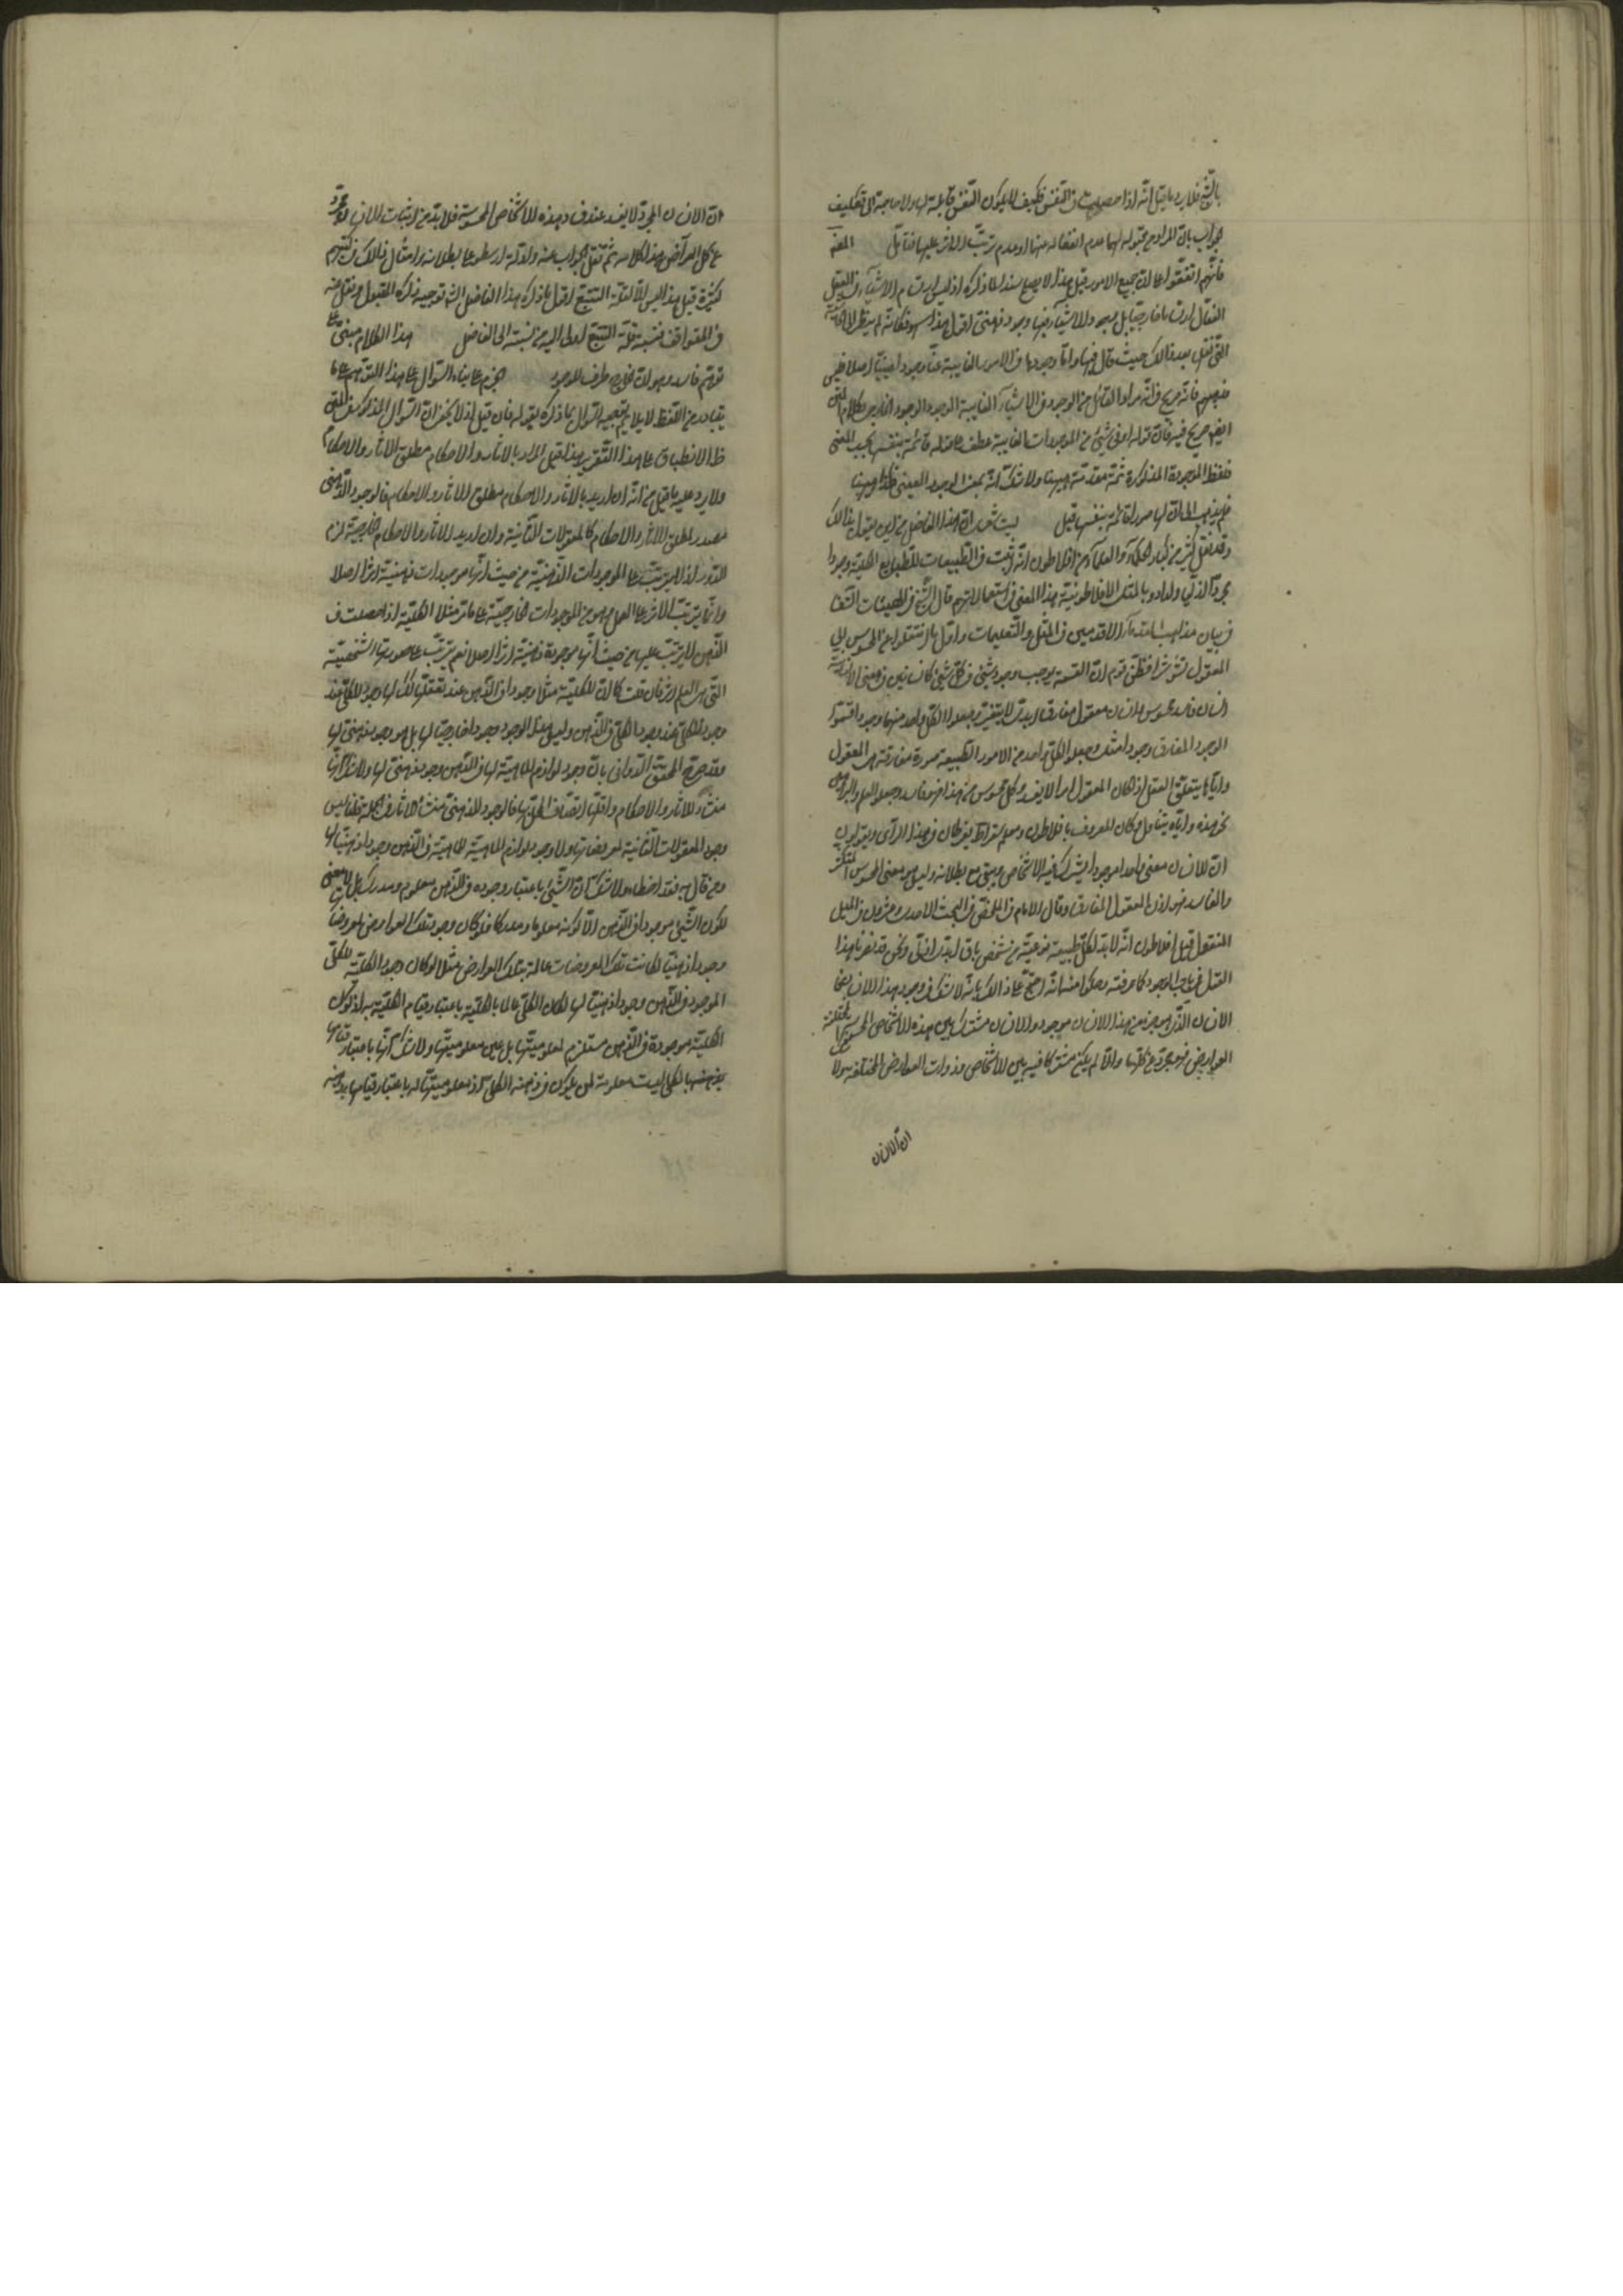 بالشبح فلا يرد ما قيل انه اذا حصلت في النفس فكيف لا يكون النفس قابلة لها ولا حاجة الى تكليف
الجواب بان المراد من قبوله لها عدم انفعاله منها او عدم ترتب الاثر عليها فتأمل
فانهم اتفقوا على ان جميع الامور قيل هذا لا يصلح سندا لما ذكره اذ ليس ارتسام الاشياء في العقل
الفعال ارتساما خارجيا بل وجود الاشياء فيها وجود ذهني اقول هذا سهو فكانه لم ينظر الى
التي نقل بعد ذالك حيث قال فيها واما وجودها في الامور الغايبة عنا وجودا عينيا اصلا
فانه صريح في انه مراد القائل من الوجود في الاشياء الغايبة الوجود الخارجي وكلام
ايضا صريح فيه فان قوله او في شيء من الموجودات الغايبة عطف على قوله قائمة بنفسها بحسب المعنى
فلفظ الموجودة المذكورة ثمة مقدمة ههنا ولا شك انه بمعنى الوجود العيني فكذا ههنا
فلم يذهب الى ان لها صورا قائمة بنفسها قيل ليت شعري ان هذا الفاضل من اين يقول ذالك
وقد نقل كثير من كبار الحكماء والعلماء من افلاطون انه يثبت في الطبيعيات للطبايع الكلية وجودا
مجردا ازليا وارادوا بالمثل الافلاطونية هذا المعنى في استعمالاتهم قال الشيخ في الهيات الشفا
في بيان مذاهب الحكماء الاقدمين في المثل والتعليمات واول ما انتقلوا عن المحسوس الى
المعقول تشوشوا فظن قوم ان القسمة يوجب وجود شيئين في كل شيء كانسانين في معنى الانسانية
انسان فاسد محسوس وانسان معقول مفارق ابدي لا يتغير وجعلوا لكل واحد منهما وجودا فسموا
الوجود المفارق وجودا مثاليا وجعلوا لكل واحد من الامور الطبيعية صورة مفارقة هي المعقول
واياها يتلقى العقل اذ كان المعقول امرا لا يفسد وكل محسوس من هذا فهو فاسد وجعلوا العلم والبراهين
نحو هذه واياه يتناول وكان المعروف بافلاطون ومعلمه سقراط يفرطان في هذا الراى ويقولون
ان للانسان معنى واحدا موجودا يشترك فيه الاشخاص ويبقى مع بطلانه وليس هو معنى المحسوس المتكثر
والفاسد فهو اذن المعقول المفارق وقال الامام في الملخص في البحث الاحد وعشرون في المثل
المنقول من افلاطون انه لا بد لكل طبيعة نوعية من شخص باق ابدى ازلى ونحن قد نصرنا هذا
القول في باب الوجود كما عرفته وحكوا منه انه احتج على ذالك بانه لا شك في وجود هذا الانسان
الانسان الذي هو جزء من هذا الانسان موجود والانسان مشترك بين هذه الاشخاص المحسوسة
العوارض فهو مجرد عن كلها والا لم يكن مشتركا فيه بين الاشخاص ذوات العوارض المختلفة
ان الانسان
ان الانسان المجرد لا يفسد عند فساد هذه الاشخاص المحسوسة فلا بد من اثبات انسان مجرد
عن كل العوارض هذا كلامه ثم نقل الجواب عنه وادلة ارسطو على بطلانه وامثال ذالك في كتبهم
كثيرة قيل هذا ليس الا لقلة التتبع اقول ما ذكره هذا الفاضل انما توجيه ذكره المقبول
في المواقف فنسبة قلة التتبع اولى اليه من نسبته الى الفاضل هذا الكلام مبنى على
توهم فاسد وهو ان الخارج ظرف للوجود
يتبادر من اللفظ لا يلايم توجيه السوال بما ذكره بقوله فان قيل اذ لا يخفى ان السوال المذكور
ظ الانطباق على هذا التقرير هذا قيل المراد بالآثار والاحكام مطلق الآثار والاحكام
ولا يرد عليه ما قيل من انه ان اريد بالآثار والاحكام مطلق الآثار والاحكام فالوجود الذهني
مصدر لمطلق الآثار والاحكام كالمعقولات الثانية وان اريد الآثار والاحكام الخارجية لزم
الدور اذ لا يترتب على الموجودات الذهنية من حيث انها موجودات ذهنية اثر اصلا
وانما يترتب الاثر على العلم وهو من الموجودات الخارجية على ما مر مثلا الكلية اذا حصلت في
الذهن لا يترتب عليها من حيث انها موجودة ذهنية اثر اصلا نعم يترتب على صورتها الشخصية
التي هي العلم اثر فان قلت كما ان للكلية مثلا وجودا في الذهن عند تعقلها كذلك لها وجود للكلي عند
وجود الكلي في الذهن وليس هذا الوجود وجودا خارجيا لها بل هو وجود ذهني لها
وقد صرح المحقق الدواني بان وجود لوازم الماهية لها في الذهن وجود ذهني لها ولا شك انها
منشأ للآثار والاحكام واقلها اتصاف المحل بها فالوجود الذهني منشأ الآثار في الجملة قلنا ليس
وجود المعقولات الثانية لمعروضاتها ولا وجود لوازم الماهية للماهية في الذهن وجودا ذهنيا لها
ومن قال به فقد اخطأ ولا شك ان الشيء باعتبار وجوده في الذهن معلوم ومدرك بل لا معنى
لكون الشيء موجودا في الذهن الا كونه معلوما ومدركا فلو كان وجود تلك العوارض لمعروضاتها
وجودا ذهنيا لكانت تلك المعروضات عالمة بتلك العوارض مثلا لو كان وجود الكلية للكلي
الموجود في الذهن وجودا ذهنيا لها لكان الكلي عالما بالكلية باعتبار قيام الكلية به اذ كون
الكلية موجودة في الذهن مستلزم لمعلوميتها بل عين معلوميتها ولا شك انها باعتبار قيامها